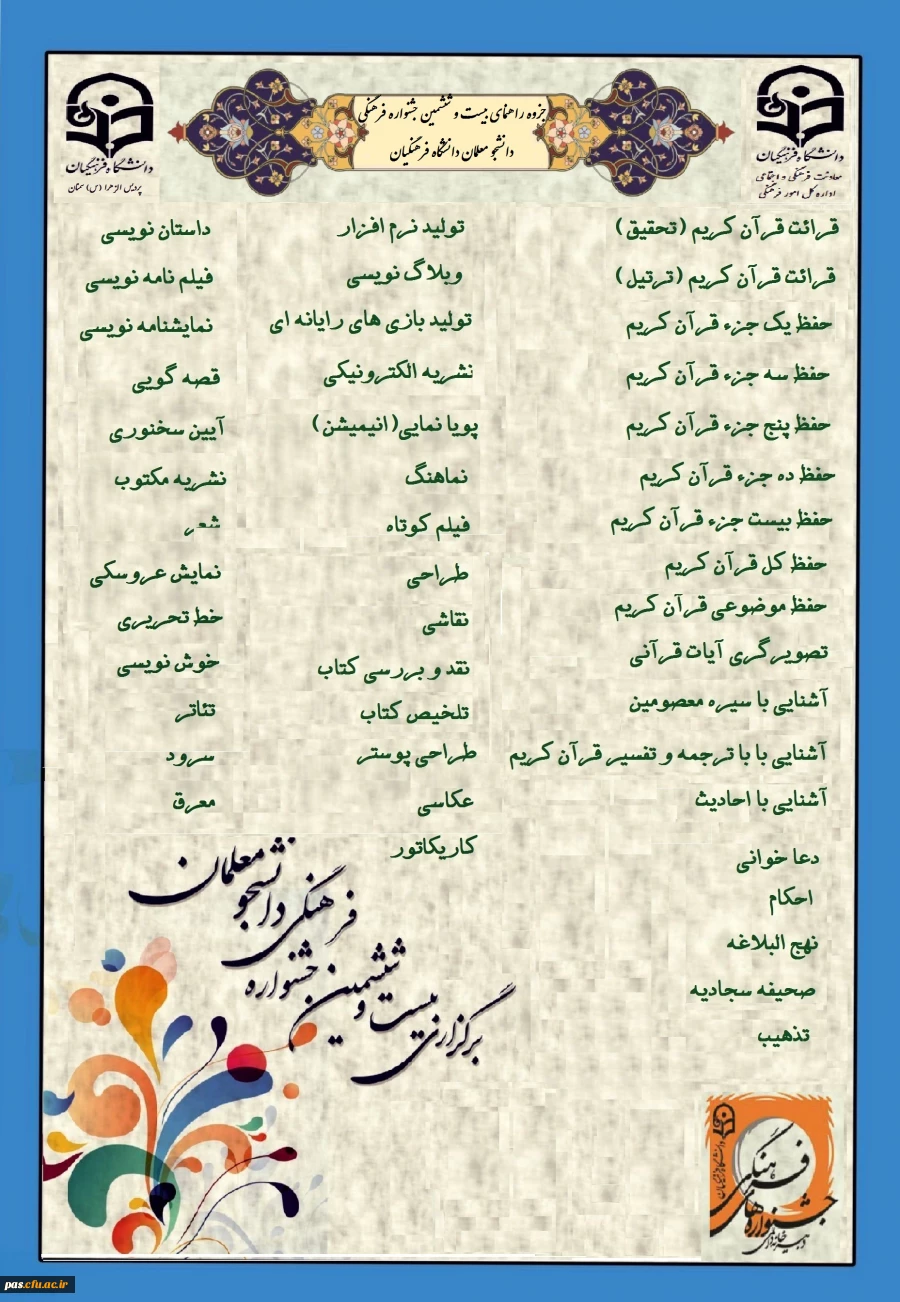 جزوه راهنمای بیست و ششمین جشنواره فرهنگی
دانشجو معلمان دانشگاه فرهنگیان
دانشگاه فرهنگیان
معاونت فرهنگی و اجتماعی
اداره کل امور فرهنگی
دانشگاه فرهنگیان
پردیس الزهرا (س) سمنان
قرائت قرآن کریم (تحقیق)
قرائت قرآن کریم (ترتیل)
حفظ یک جزء قرآن کریم
حفظ سه جزء قرآن کریم
حفظ پنج جزء قرآن کریم
حفظ ده جزء قرآن کریم
حفظ بیست جزء قرآن کریم
حفظ کل قرآن کریم
حفظ موضوعی قرآن کریم
تصویرگری آیات قرآنی
آشنایی با سیره معصومین
آشنایی با با ترجمه و تفسیر قرآن کریم
آشنایی با احادیث
دعا خوانی
احکام
نهج البلاغه
صحیفه سجادیه
تذهیب
تولید نرم افزار
وبلاگ نویسی
تولید بازی های رایانه ای
نشریه الکترونیکی
پویا نمایی(انیمیشن)
نماهنگ
فیلم کوتاه
طراحی
نقاشی
نقد و بررسی کتاب
تلخیص کتاب
طراحی پوستر
عکاسی
کاریکاتور
داستان نویسی
فیلم نامه نویسی
نمایشنامه نویسی
قصه گویی
آیین سخنوری
نشریه مکتوب
شعر
نمایش عروسکی
خط تحریری
خوش نویسی
تئاتر
سرود
معرق
برگزاری بیست و ششمین جشنواره فرهنگی دانشجو معلمان
دانشگاه فرهنگیان
جشنواره‌های فرهنگی
pas.cfu.ac.ir